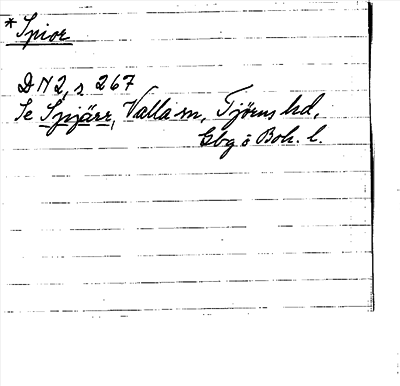 * Spior
D N 2, s 267
Se Spjärr, Valla sn, Tjörns hd,
Gbg o Boh. l.